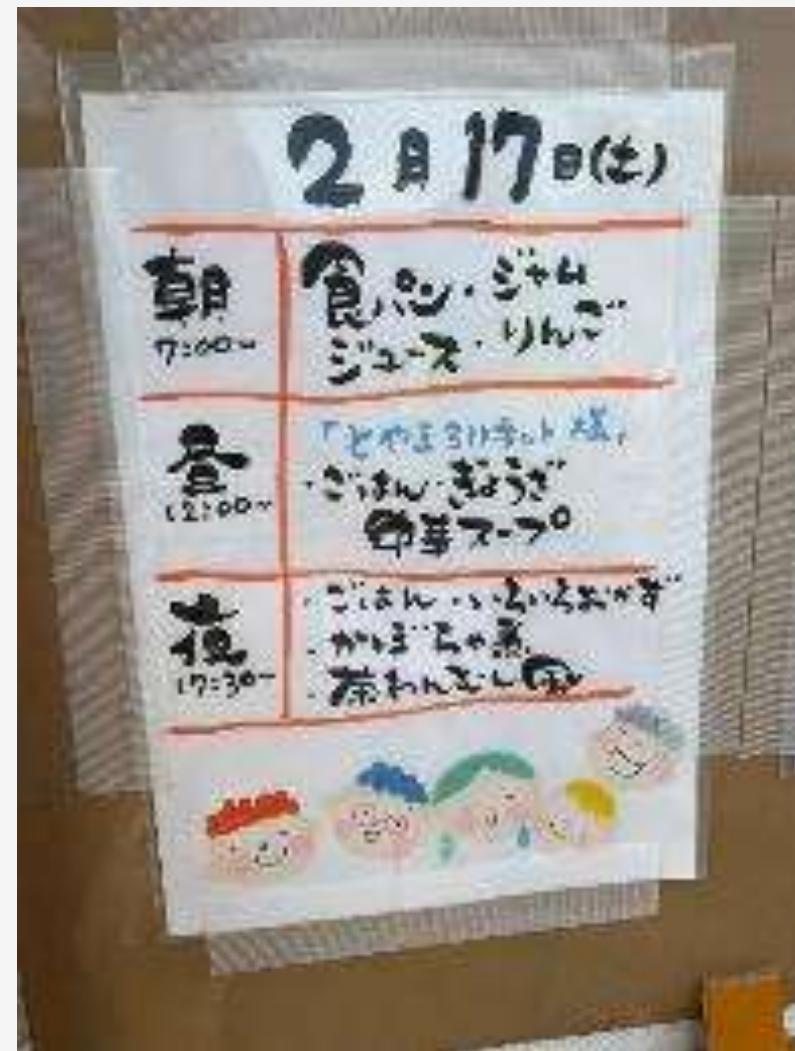 2月17日(土)
朝
7:00~
食パン・ジャム
ジュース・りんご
昼
12:00~
「とやま 様」
・ごはん・ぎょうざ
中華スープ
夜
17:30~
・ごはん・いろいろおかず
・かぼちゃ煮
・茶わんむし風